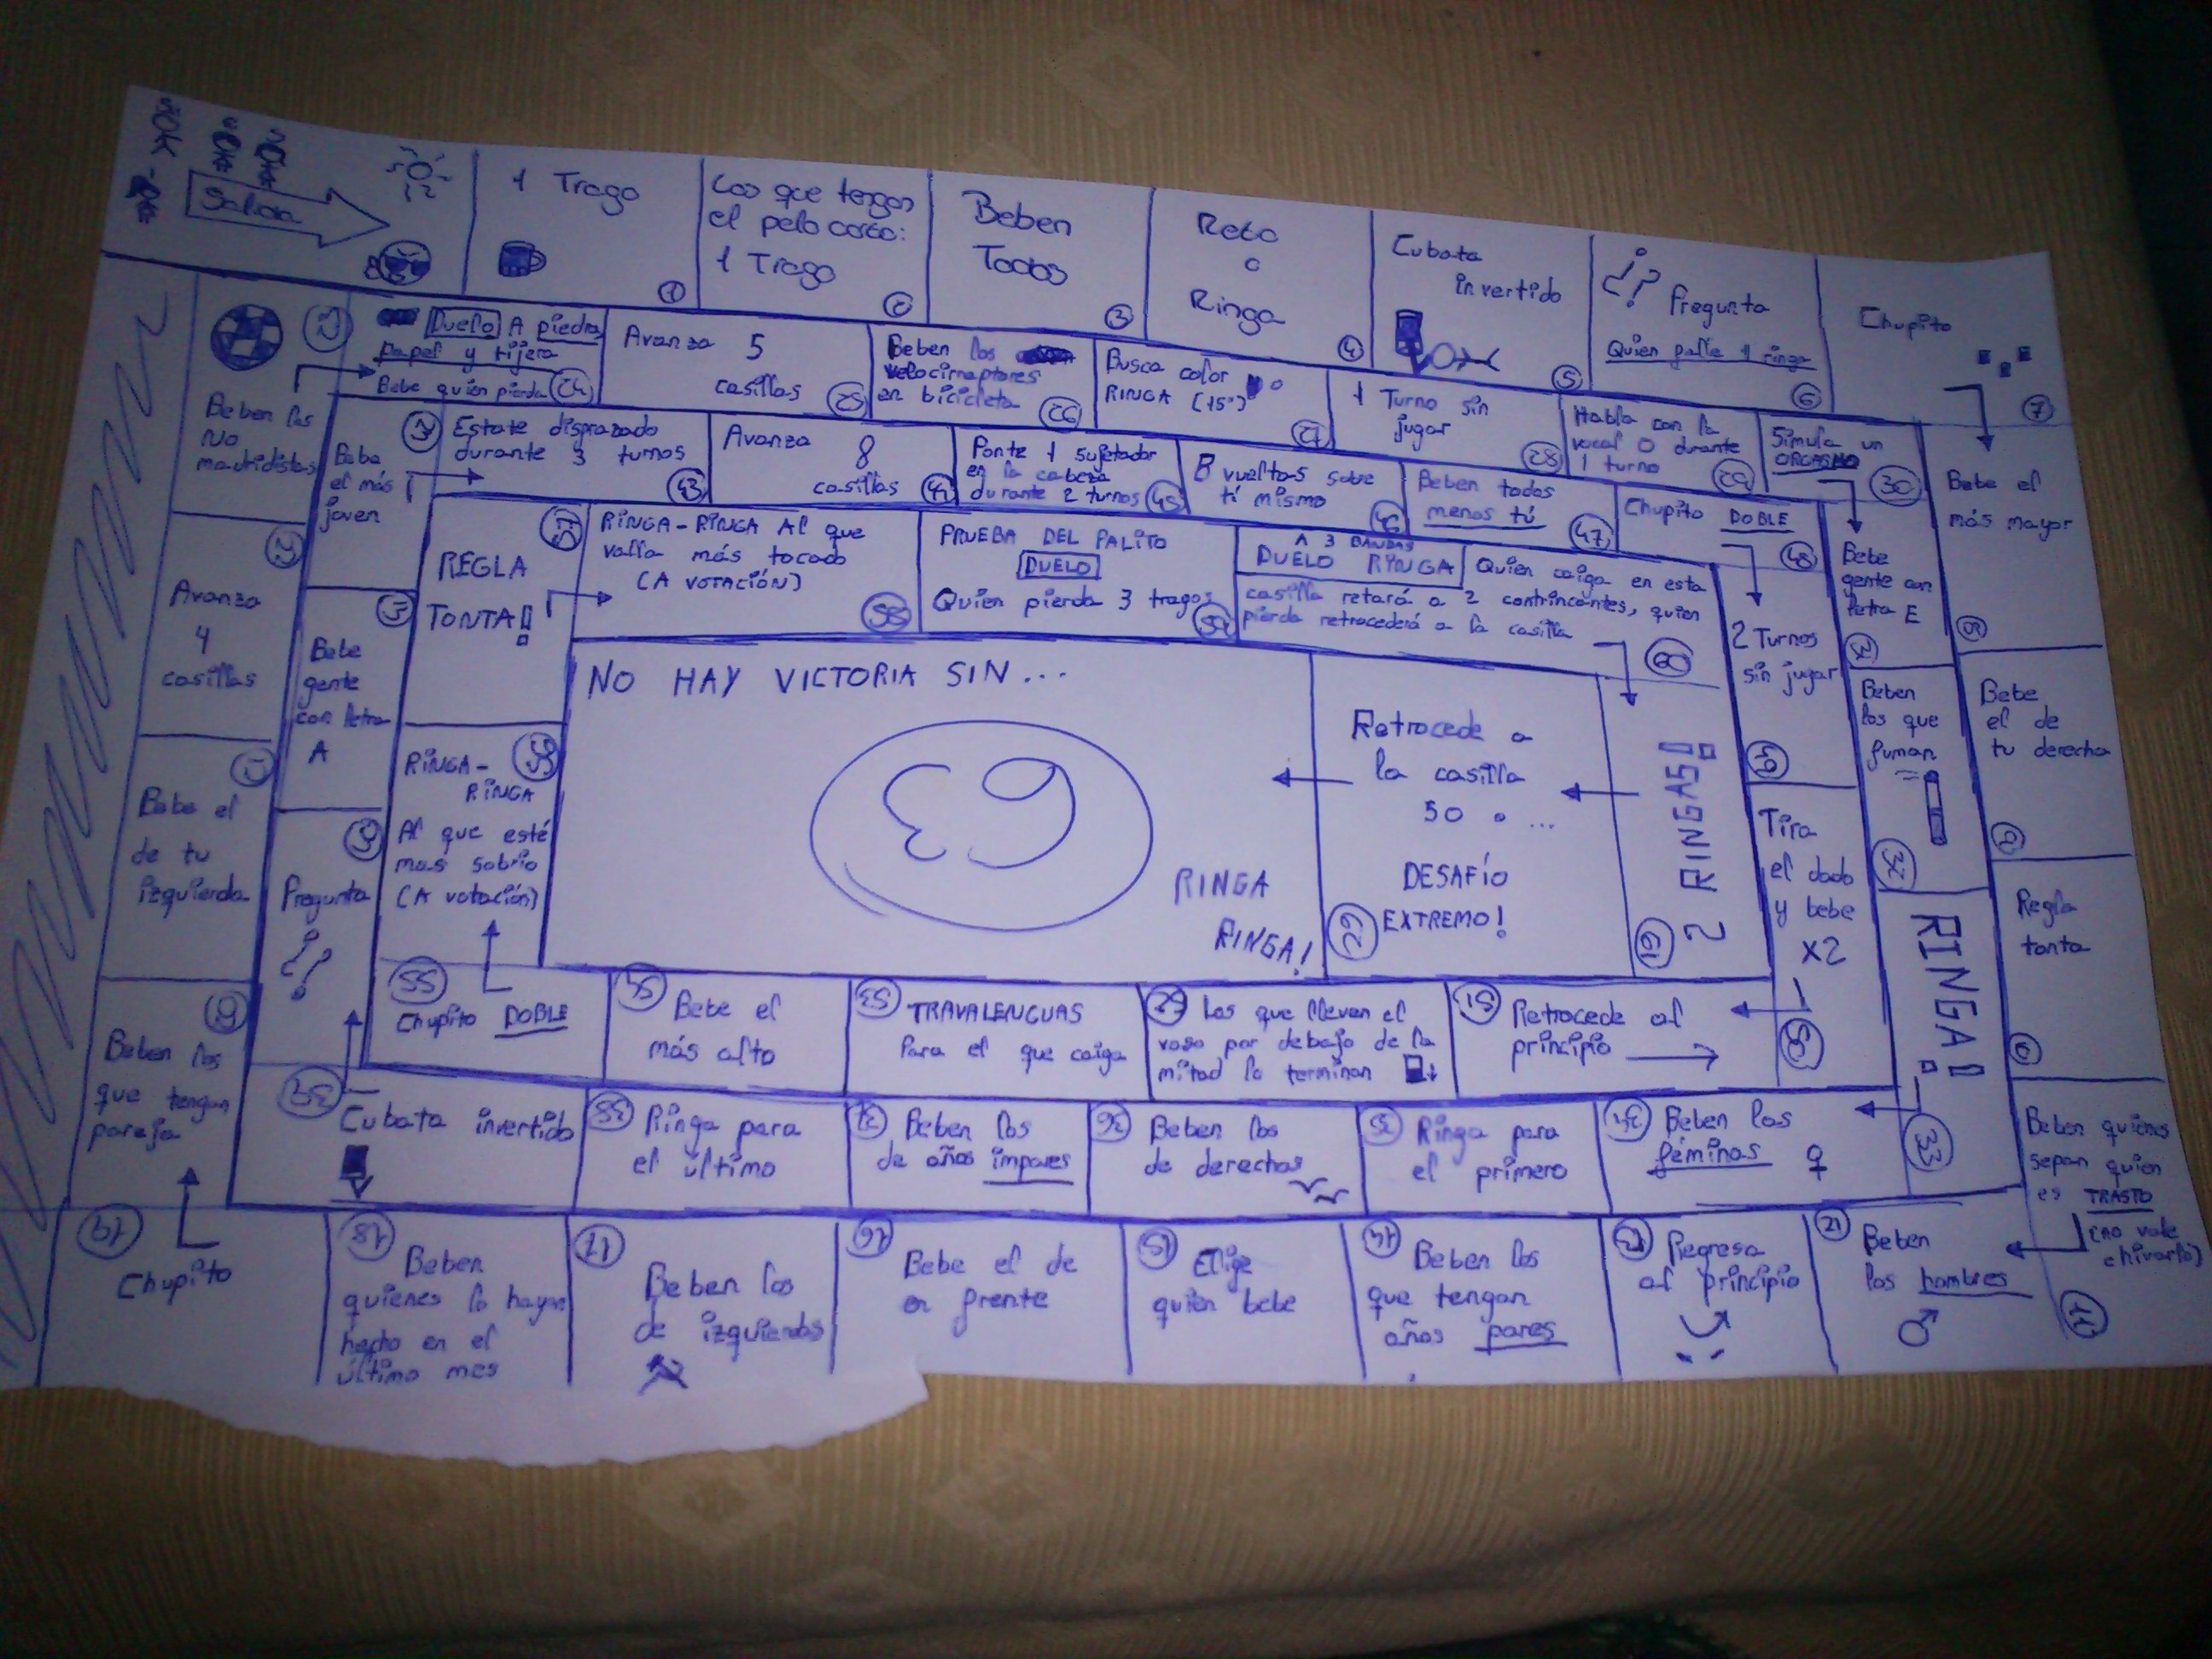 Salida
1 Trago
1
Los que tengan
el pelo corto:
1 Trago
2
Beben
Todos
3
Reto
o
Ringa
4
Cubata
invertido
5
¿? Pregunta
Quien falle 1 ringa
6
Chupito
7
Bebe el
más mayor
8
Bebe
el de
tu derecha
9
Regla
tonta
10
Beben quienes
sepan quien
es TRASTO
(no vale
chivarlo)
11
12
Beben
los hombres
13
Regresa
al principio
14
Beben los
que tengan
años pares
15
Elige
quien bebe
16
Bebe el de
en frente
17
Beben los
de izquierdas
18
Beben
quienes lo hayan
hecho en el
último mes
19
Chupito
20
Beben los
que tengan
pareja
21
Bebe el
de tu
izquierda
22
Avanza
4
casillas
23
Beben los
NO
madridistas
Duelo A piedra
papel y tijera
Bebe quien pierda 24
Avanza 5
casillas 25
Beben los
velocirraptores
en bicicleta 26
Busca color
RINGA (15")
27
1 Turno sin
jugar
28
Habla con la
vocal O durante
1 turno 29
Simula un
ORGASMO
30
Bebe
gente con
letra E
31
Beben
los que
fuman
32
RINGA!
33
34 Beben las
féminas
35 Ringa para
el primero
36 Beben los
de derechas
37 Beben los
de años impares
38 Ringa para
el último
39
Cubata invertido
40
Pregunta
¿?
41
Bebe
gente
con letra
A
42
Bebe
el más
joven
Estate disprazado
durante 3 turnos
43
Avanza
8
casillas 44
Ponte 1 sujetador
en la cabeza
durante 2 turnos 45
8 vueltas sobre
tí mismo
46
Beben todos
menos tú
47
Chupito DOBLE
48
2 Turnos
sin jugar
49
Tira
el dado
y bebe
x2
50
51 Retrocede al
principio
52 Los que lleven el
vaso por debajo de la
mitad lo terminan
53 TRAVALENGUAS
Para el que caiga
54 Bebe el
más alto
55
Chupito DOBLE
56
RINGA-
RINGA
Al que esté
mas sobrio
(A votación)
57
REGLA
TONTA!!
RINGA-RINGA Al que
valla más tocado
(A VOTACIÓN)
58
PRUEBA DEL PALITO
DUELO
Quien pierda 3 tragos
59
A 3 BANDAS
DUELO RINGA Quien caiga en esta
casilla retará a 2 contrincantes, quien
pierda retrocederá a la casilla
60
2 RINGAS!
61
Retrocede a
la casilla
50 o ...
DESAFÍO
EXTREMO!
62
NO HAY VICTORIA SIN...
RINGA
RINGA!